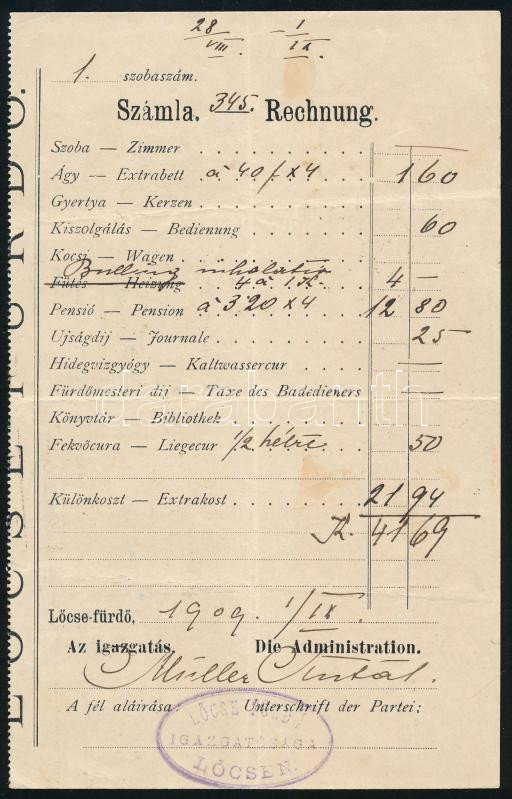 28/VIII – 1/IX
1. szobaszám.
Számla. 345. Rechnung.
Szoba — Zimmer —
Ágy — Extrabett à 40 f x 4 1 60
Gyertya — Kerzen
Kiszolgálás — Bedienung 60
Kocsi — Wagen
inhalatio
Fütés — Heizung 4 à 1 K. 4 —
Pensió — Pension à 3 20 x 4 12 80
Ujságdij — Journale 25
Hidegvizgyógy — Kaltwassercur —
Fürdőmesteri dij — Taxe des Badedieners —
Könyvtár — Bibliothek
Fekvőcura — Liegecur 1/2 hétre 50
Különkoszt — Extrakost 21 94
K. 41 69
Lőcse-fürdő, 1909. 1/IX
Az igazgatás. Die Administration.
Müller Antal.
A fél aláirása: Unterschrift der Partei:
LŐCSE-FÜRDŐ
IGAZGATÓSÁGA
LŐCSÉN.
LŐCSEFÜRDŐ.
darabanth